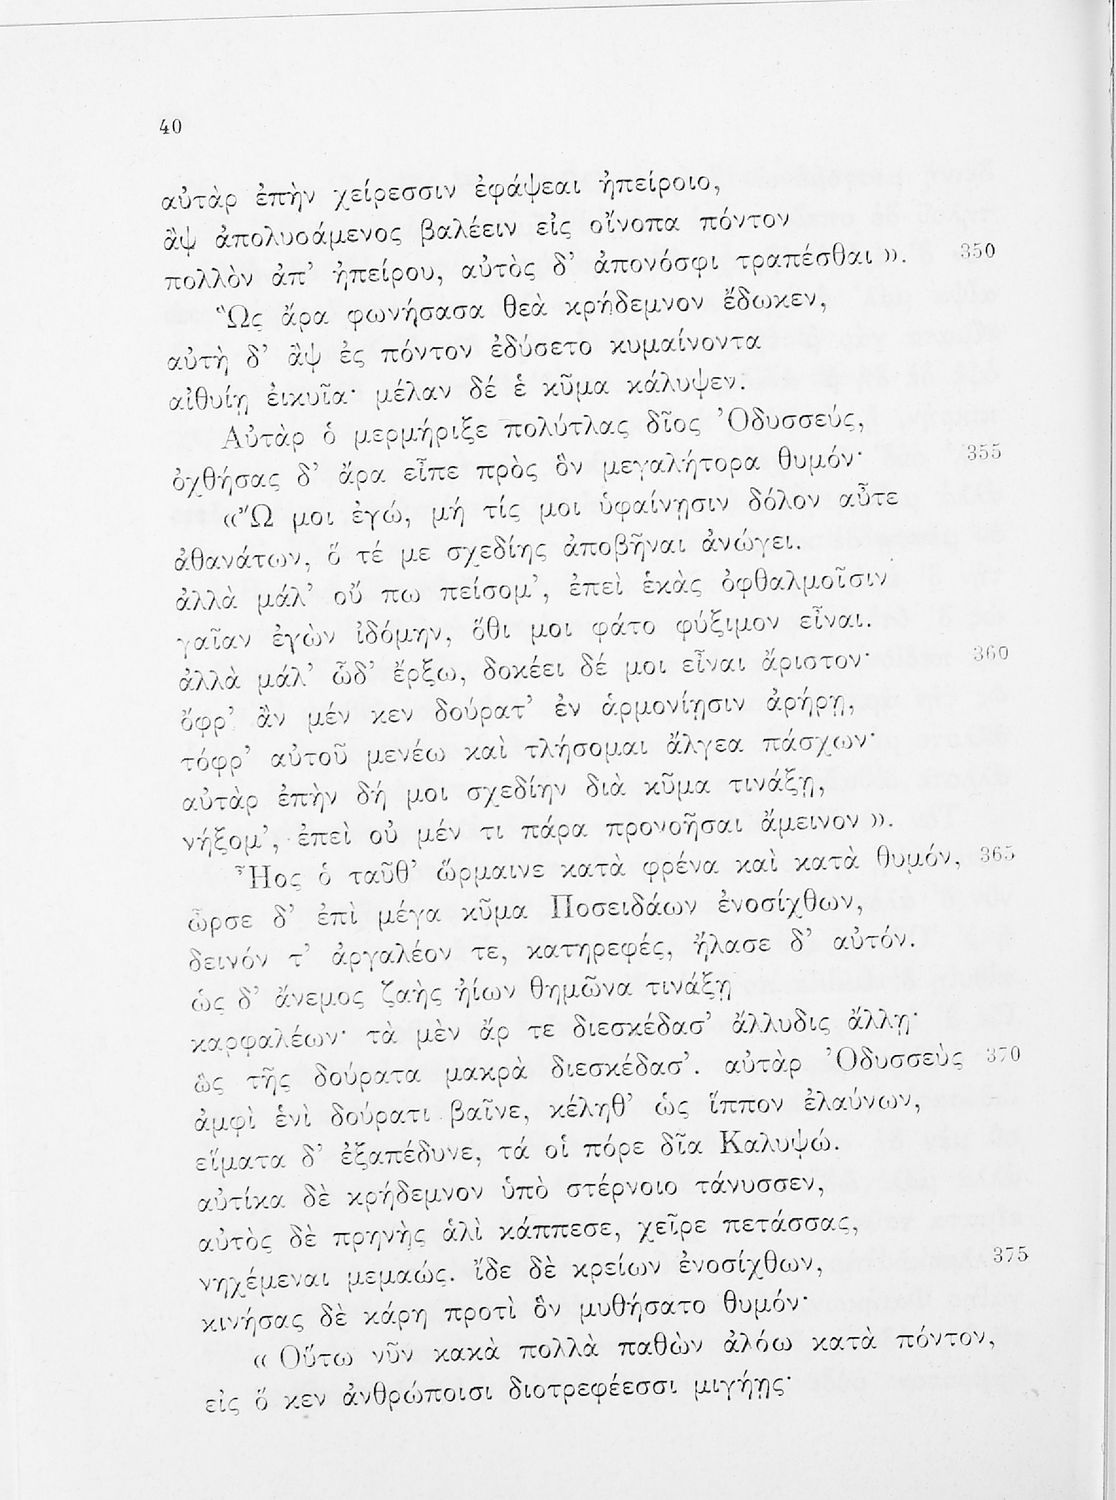 40
αὐτὰρ ἐπὴν χείρεσσιν ἐφάψεαι ἠπείροιο,
ἂψ ἀπολυσάμενος βαλέειν εἰς οἴνοπα πόντον
πολλὸν ἀπ’ ἠπείρου, αὐτὸς δ’ ἀπονόσφι τραπέσθαι ». 350
Ὣς ἄρα φωνήσασα θεὰ κρήδεμνον ἔδωκεν,
αὐτὴ δ’ ἂψ ἐς πόντον ἐδύσετο κυμαίνοντα
αἰθυίῃ ἐικυῖα· μέλαν δέ ἑ κῦμα κάλυψεν.
Αὐτὰρ ὁ μερμήριξε πολύτλας δῖος Ὀδυσσεύς,
ὀχθήσας δ’ ἄρα εἶπε πρὸς ὃν μεγαλήτορα θυμόν· 355
«Ὤ μοι ἐγώ, μή τίς μοι ὑφαίνῃσιν δόλον αὖτε
ἀθανάτων, ὅ τέ με σχεδίης ἀποβῆναι ἀνώγει.
ἀλλὰ μάλ’ οὔ πω πείσομ’, ἐπεὶ ἑκὰς ὀφθαλμοῖσιν
γαῖαν ἐγὼν ἰδόμην, ὅθι μοι φάτο φύξιμον εἶναι.
ἀλλὰ μάλ’ ὧδ’ ἔρξω, δοκέει δέ μοι εἶναι ἄριστον· 360
ὄφρ’ ἂν μέν κεν δούρατ’ ἐν ἁρμονίῃσιν ἀρήρῃ,
τόφρ’ αὐτοῦ μενέω καὶ τλήσομαι ἄλγεα πάσχων·
αὐτὰρ ἐπὴν δή μοι σχεδίην διὰ κῦμα τινάξῃ,
νήξομ’, ἐπεὶ οὐ μέν τι πάρα προνοῆσαι ἄμεινον ».
Ἧος ὁ ταῦθ’ ὥρμαινε κατὰ φρένα καὶ κατὰ θυμόν, 365
ὦρσε δ’ ἐπὶ μέγα κῦμα Ποσειδάων ἐνοσίχθων,
δεινόν τ’ ἀργαλέον τε, κατηρεφές, ἤλασε δ’ αὐτόν.
ὡς δ’ ἄνεμος ζαὴς ἠίων θημῶνα τινάξῃ
καρφαλέων· τὰ μὲν ἄρ τε διεσκέδασ’ ἄλλυδις ἄλλῃ·
ὣς τῆς δούρατα μακρὰ διεσκέδασ’. αὐτὰρ Ὀδυσσεὺς 370
ἀμφὶ ἑνὶ δούρατι βαῖνε, κέληθ’ ὡς ἵππον ἐλαύνων,
εἵματα δ’ ἐξαπέδυνε, τά οἱ πόρε δῖα Καλυψώ.
αὐτίκα δὲ κρήδεμνον ὑπὸ στέρνοιο τάνυσσεν,
αὐτὸς δὲ πρηνὴς ἁλὶ κάππεσε, χεῖρε πετάσσας,
νηχέμεναι μεμαώς. ἴδε δὲ κρείων ἐνοσίχθων, 375
κινήσας δὲ κάρη προτὶ ὃν μυθήσατο θυμόν·
« Οὕτω νῦν κακὰ πολλὰ παθὼν ἀλόω κατὰ πόντον,
εἰς ὅ κεν ἀνθρώποισι διοτρεφέεσσι μιγήῃς·